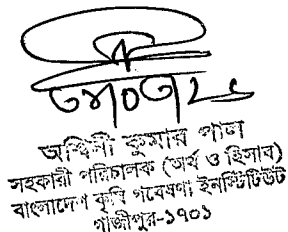 অশ্বিনী কুমার পাল
সহকারী পরিচালক (অর্থ ও হিসাব)
বাংলাদেশ কৃষি গবেষণা ইনস্টিটিউট
গাজীপুর-১৭০১